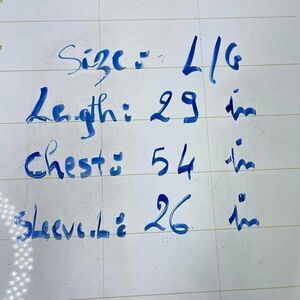 Size: L/G
Length: 29 in
Chest: 54 in
Sleeve.L: 26 in